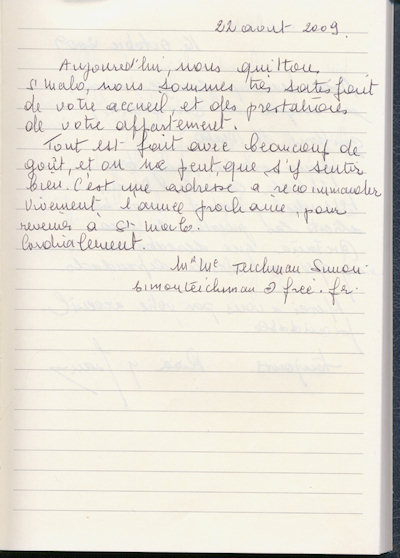 22 aout 2009.
Aujourd'hui, nous quittons
St malo, nous sommes très satisfait
de votre accueil, et des prestations
de votre appartement.
Tout est fait avec beaucoup de
goût, et on ne peut, que s'y sentir
bien. C'est une adresse a recommander
vivement l'année prochaine, pour
revenir à St Malo.
Cordialement.
Mr Me Teichman Simon
simonteichman @ free.fr.